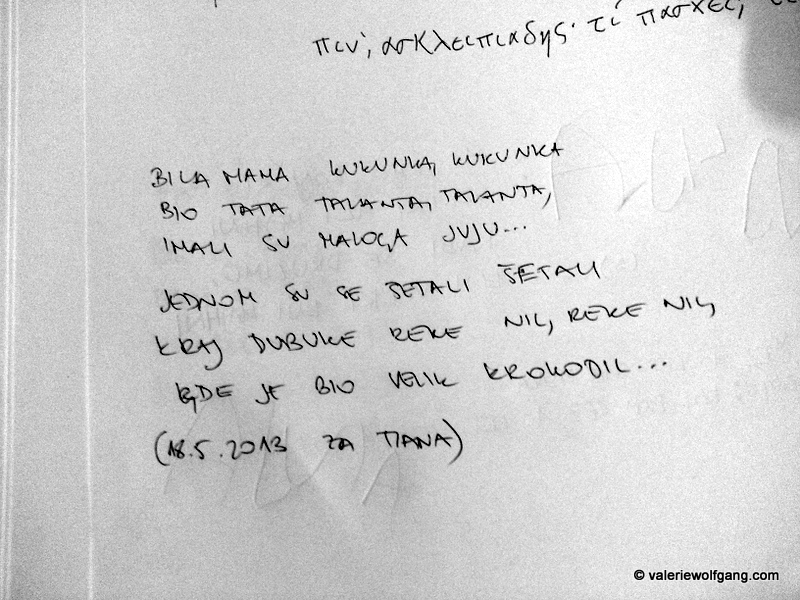 πιν', ασκλειπιαδης· τί πασχεις,
BILA MAMA KUKUNKA, KUKUNKA
BIO TATA TALANTA, TALANTA,
IMALI SU MALOGA JUJU...
JEDNOM SU SE ŠETALI ŠETALI
KRAJ DUBUKE REKE NIL, REKE NIL,
GDE JE BIO VELIK KROKODIL...
(18.5.2013 ZA TIANA)
© valeriewolfgang.com